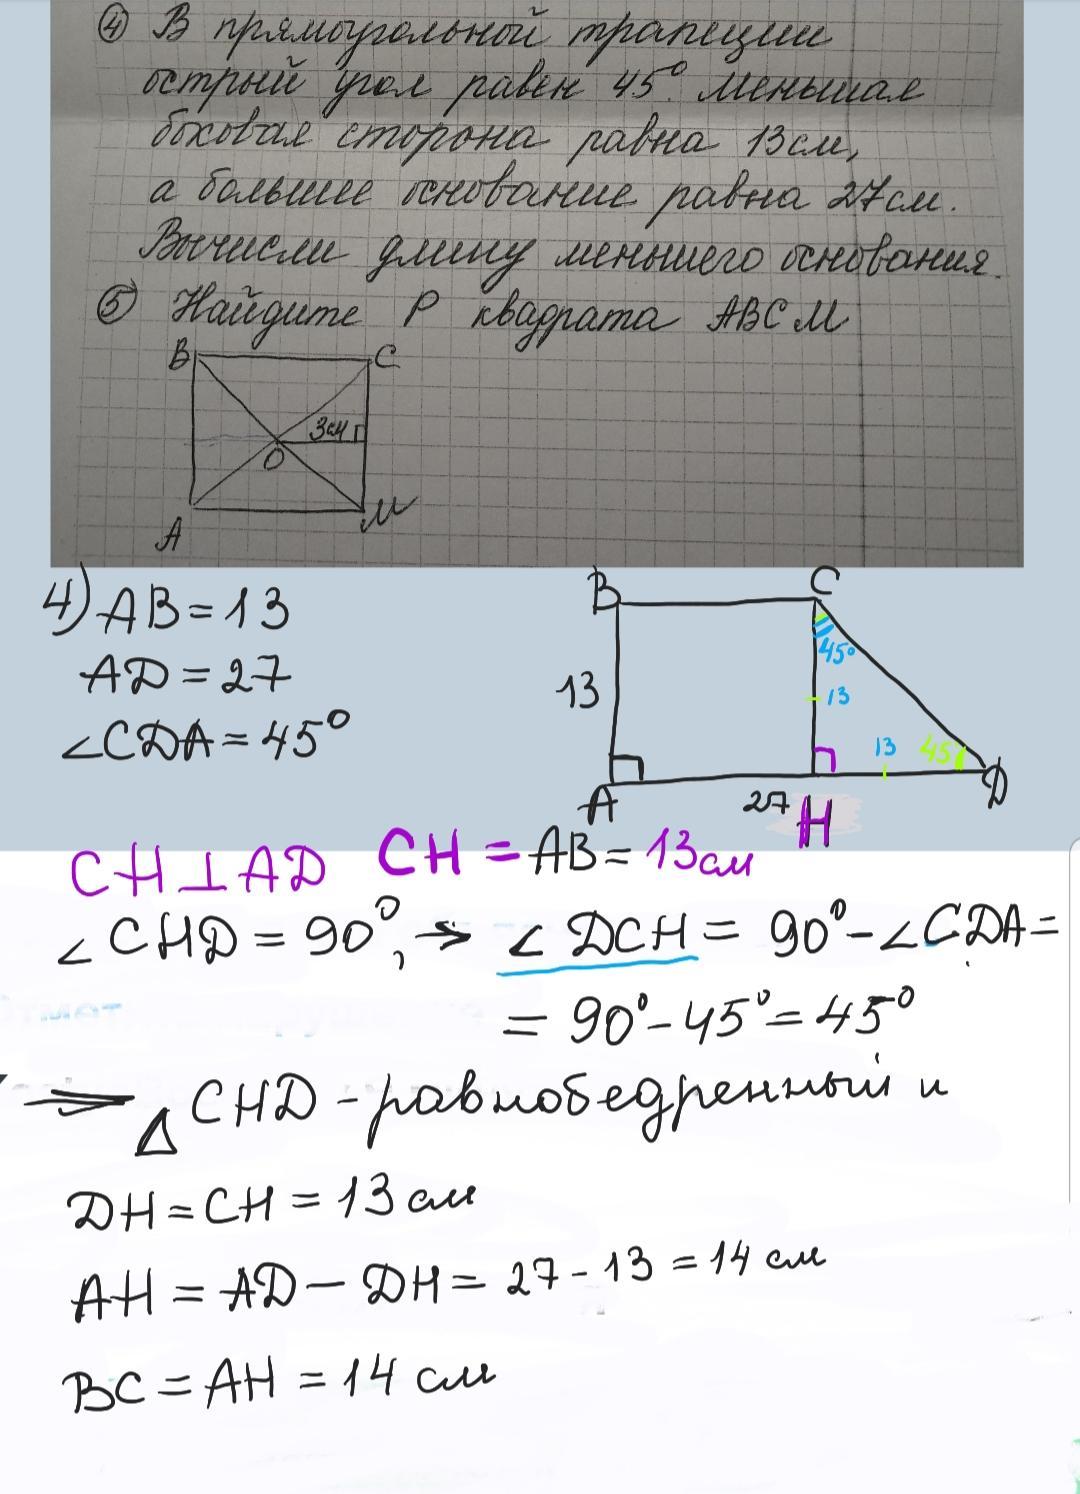 ④ В прямоугольной трапеции
острый угол равен 45°. Меньшая
боковая сторона равна 13см,
а большее основание равна 27см.
Вычисли длину меньшего основания.
⑤ Найдите P квадрата ABCM
B
C
3см
O
A
M
4) AB = 13
AD = 27
∠CDA = 45°
B
C
45°
13
13
13
45
A
27
H
D
CH⊥AD CH = AB = 13см
∠CHD = 90°, → ∠DCH = 90° - ∠CDA =
= 90° - 45° = 45°
⇒ △CHD - равнобедренный и
DH = CH = 13 см
AH = AD - DH = 27 - 13 = 14 см
BC = AH = 14 см